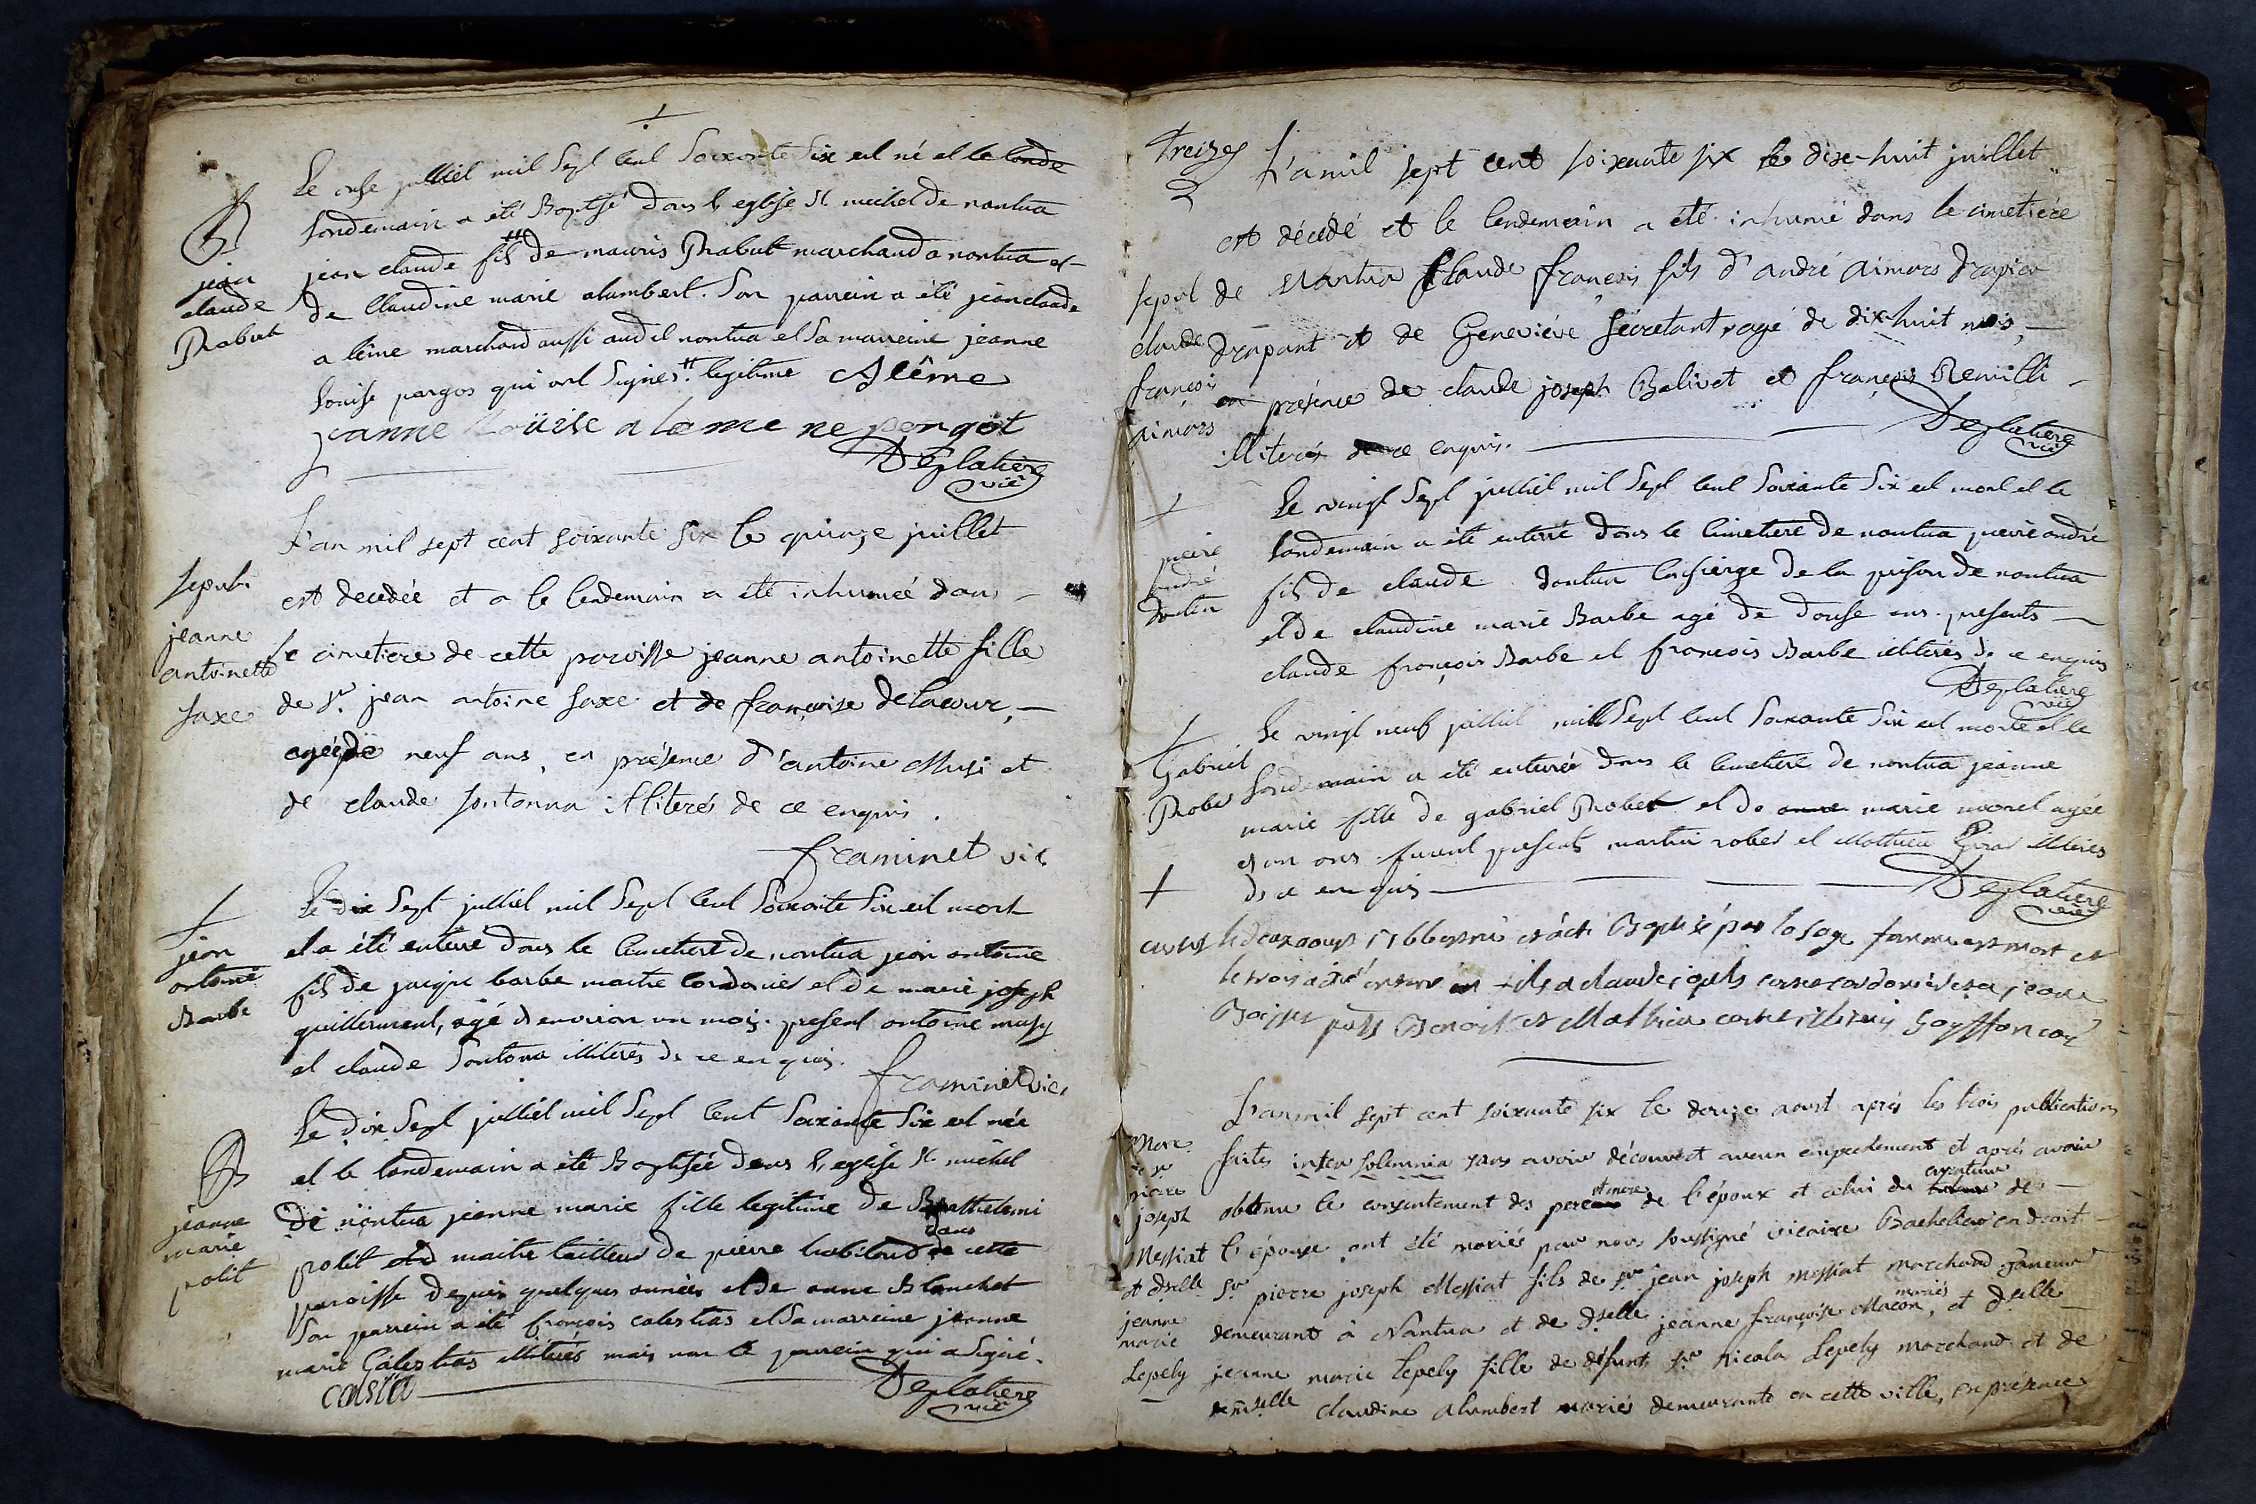 B
jean
claude
Probut
Le onse julliel mil Sept Cent Soixonte Six est né et le londe
londemain a été Baptisé dans l'eglise St michel de nantua
jean claude fils # de mauris Probut marchand a nontua et
de Claudine marie alumbert. Son parrein a été jeanclaude
a lême marchand aussi audit nontua et Sa marreine jeanne
louise pargos qui ont Signés # legitime Alême
jeanne Loüise aleme ne pongot
Deglatiere vic
sepult
jeanne
antoinette
saxe
L'an mil sept cent soixante six le quinze juillet
est decedée et a le lendemain a été inhumée dans
le cimetiere de cette paroisse jeanne antoinette fille
de sr. jean antoine saxe et de françoise Delacour,
agée de neuf ans, en présence d'antoine Musi et
de claude sontonna illiterés de ce enquis.
framinet vic
jean
antoine
Barbe
Le dix Sept julliel mil Sept Cent Soixonte Six est mort
et a été enterré dans le Cimetiere de nontua jean antoine
fils de jaique barbe maitre Cordonier et de marie joseph
guillermet, agé d'environ un mois. present antoine musy
et claude Sontona illiterés de ce en quis.
framinet vic
B
jeanne
marie
polit
Le Dix Sept julliel mil Sept Cent Soixante Six est née
et le londemain a été Baptisée dans l'eglise St michel
De nontua jeanne marie fille legitime de Barthelemi
polit maitre tailleur de pierre habitand dans cette
paroisse depuis quelques années et de anne Blanchet
Son parrein a été françois calestias et Sa marreine jeanne
marie Calestias illiterés mais non le parrein qui a Signé.
Deglatiere vic
Treize
2
sepul
claude
françois
aimars
L'amil sept cent soixante six le dix-huit juillet
est décedé et le lendemain a été inhumé dans le cimetiére
de Nantua Claude françois fils d'andré aimars drapier
drapant et de Geneviéve Sécretant, agé de dix huit mois,
en présence de claude joseph Balivet et françois Remilli
illiterés de ce enquis.
Deglatiere vic
pierre
andré
dontun
Le vingt Sept julliel mil Sept Cent Soixante Six est mort et le
londemain a été enterré dans le Cimetiere de nontua pierre andré
fils de claude dontun Consierge de la prison de nontua
et de claudine marie Barbe agé de douse ans. presents
claude françois Barbe et françois Barbe illiterés de ce enquis
Deglatiere vic
Gabriel
Probet
Le vingt neuf julliel mil Sept Cent Soixante Six est morte et le
londemain a été enterrée dans le Cimetiere de nontua jeanne
marie fille de gabriel Probet et de anne marie morel agée
d'un ans furent presents martin rober et Mathieu Giros illiterés
de ce en quis
Deglatiere vic
le deux aoust 1766 est né et a été Baptisé par la sage femme est mort et
le trois a été enterré fils a claude joseph carre cordonier et a jeane
Boisset Benoit et Mathieu carre illiterés Goyffon
Mre
pierre
joseph
Messiat
et dselle
jeanne
marie
Lepely
L'an mil sept cent soixante six le douze aoust aprés les trois publications
faites inter solemnia sans avoir découvert aucun empechement et aprés avoir
obtenu le consentement des pere et mere de l'époux et celui du curateur de
l'épouse ont été mariés par nous soussigné vicaire Bachelier en droit
sr pierre joseph Messiat fils de sr jean joseph messiat marchand Taneur
demeurant à Nantua et de dselle jeanne françoise Macon, mariés et dselle
jeanne marie Lepely fille de défunt sr Nicola Lepely marchand et de
demselle claudine alumbert mariés demeurante en cette ville, en présence